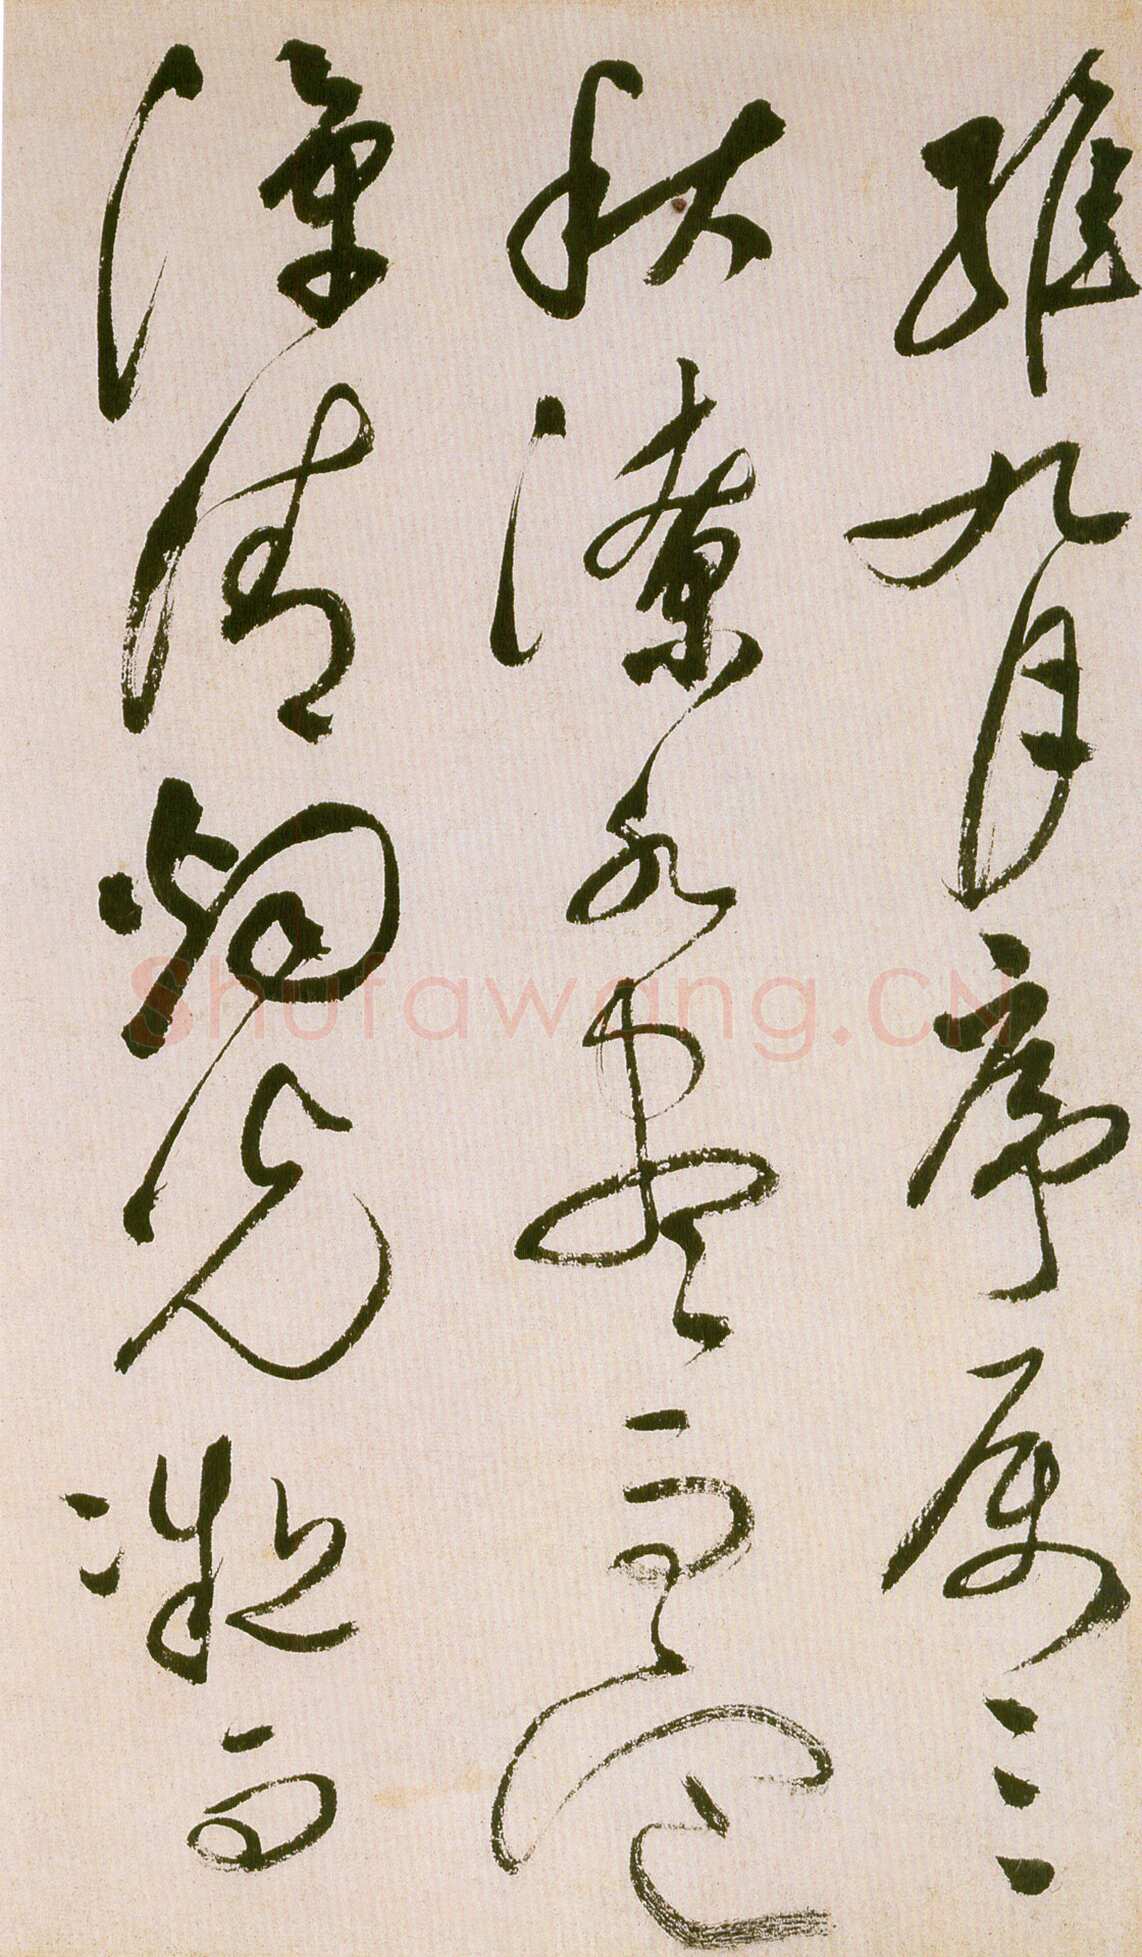 維九月序属三
秋潦水盡而寒
潭清烟光凝而
Shufawang.CN